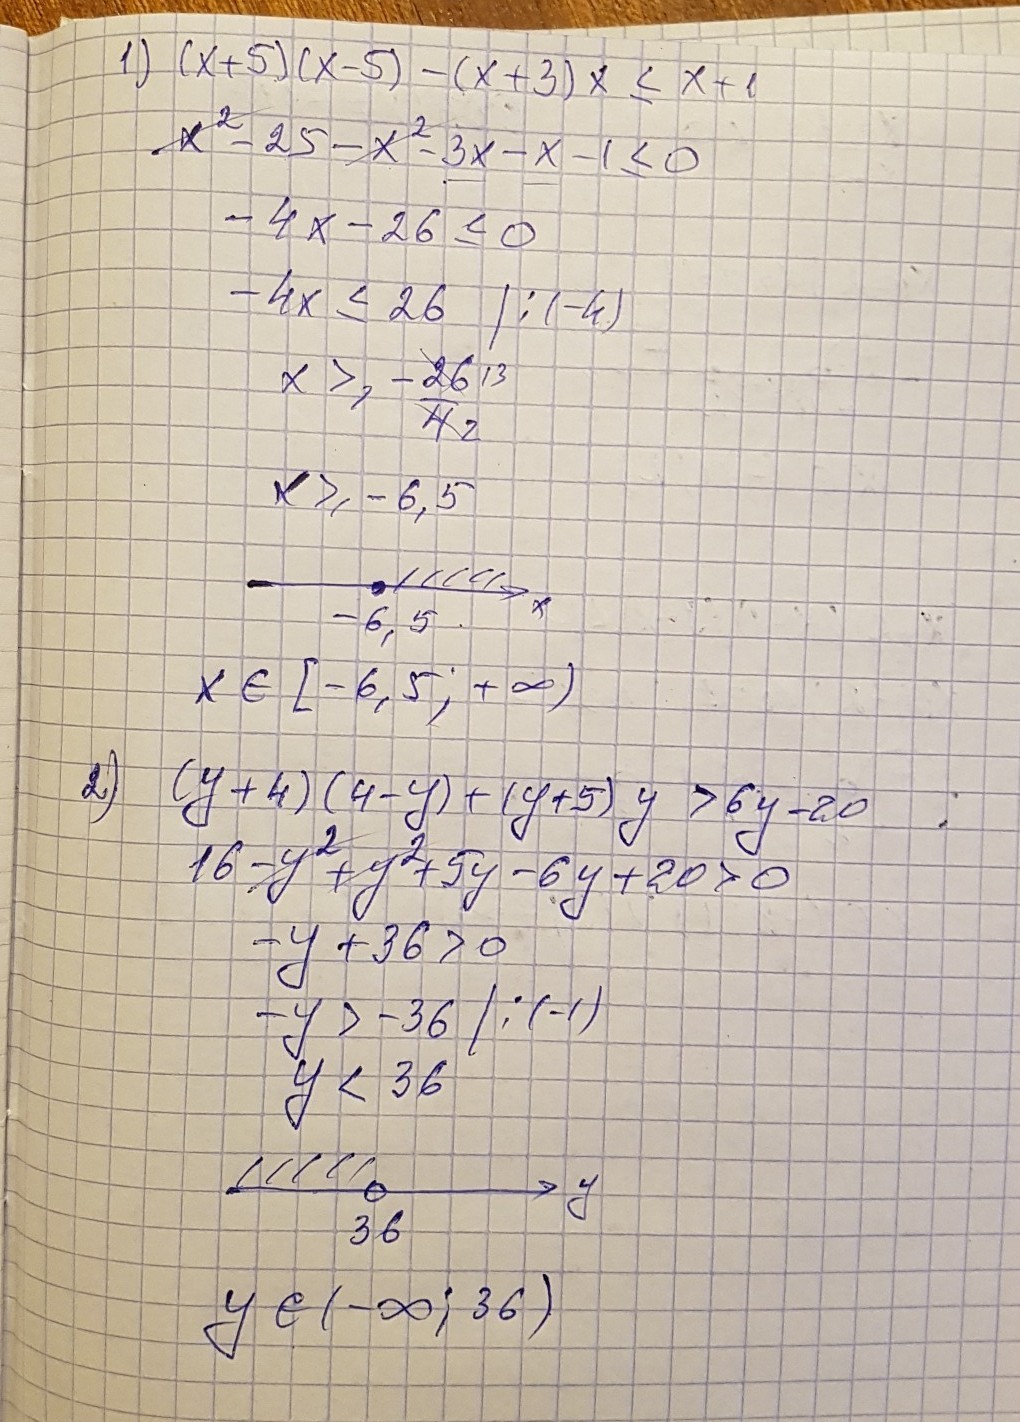 1) (x+5)(x-5) -(x+3)x ≤ x+1
x²-25-x²-3x-x-1≤0
-4x-26≤0
-4x≤26 /:(-4)
x ⩾ -26/4 13/2
x ⩾ -6,5
-6,5 x
x ∈ [-6,5; +∞)
2) (y+4)(4-y)+(y+5)y >6y-20
16-y²+y²+5y-6y+20>0
-y+36>0
-y>-36 /:(-1)
y < 36
36 y
y ∈ (-∞; 36)